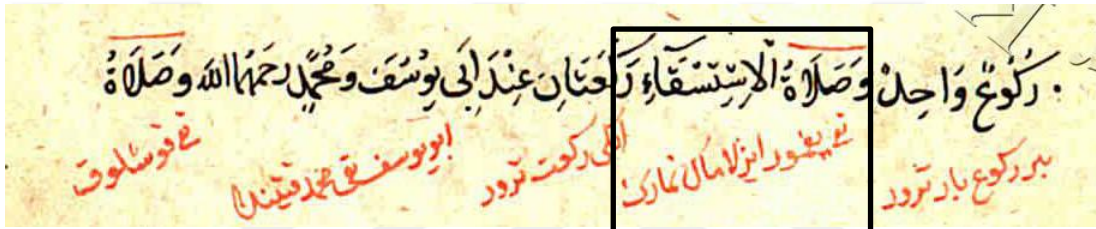 رُكُوعٌ وَاحِدٌ وَصَلَاةُ الْاِسْتِسْقَاءِ رَكْعَتَانِ عِنْدَ اَبِى يُوسُفَ وَمُحَمَّدٍ رَحِمَهُمَا اللّٰهُ وَصَلَاةُ
بير ركوع بار ترور تقى يغمور ايزلامال نمازى ايكى ركعت ترور ابو يوسف تقى محمد قتيندا تقى قوشلوق